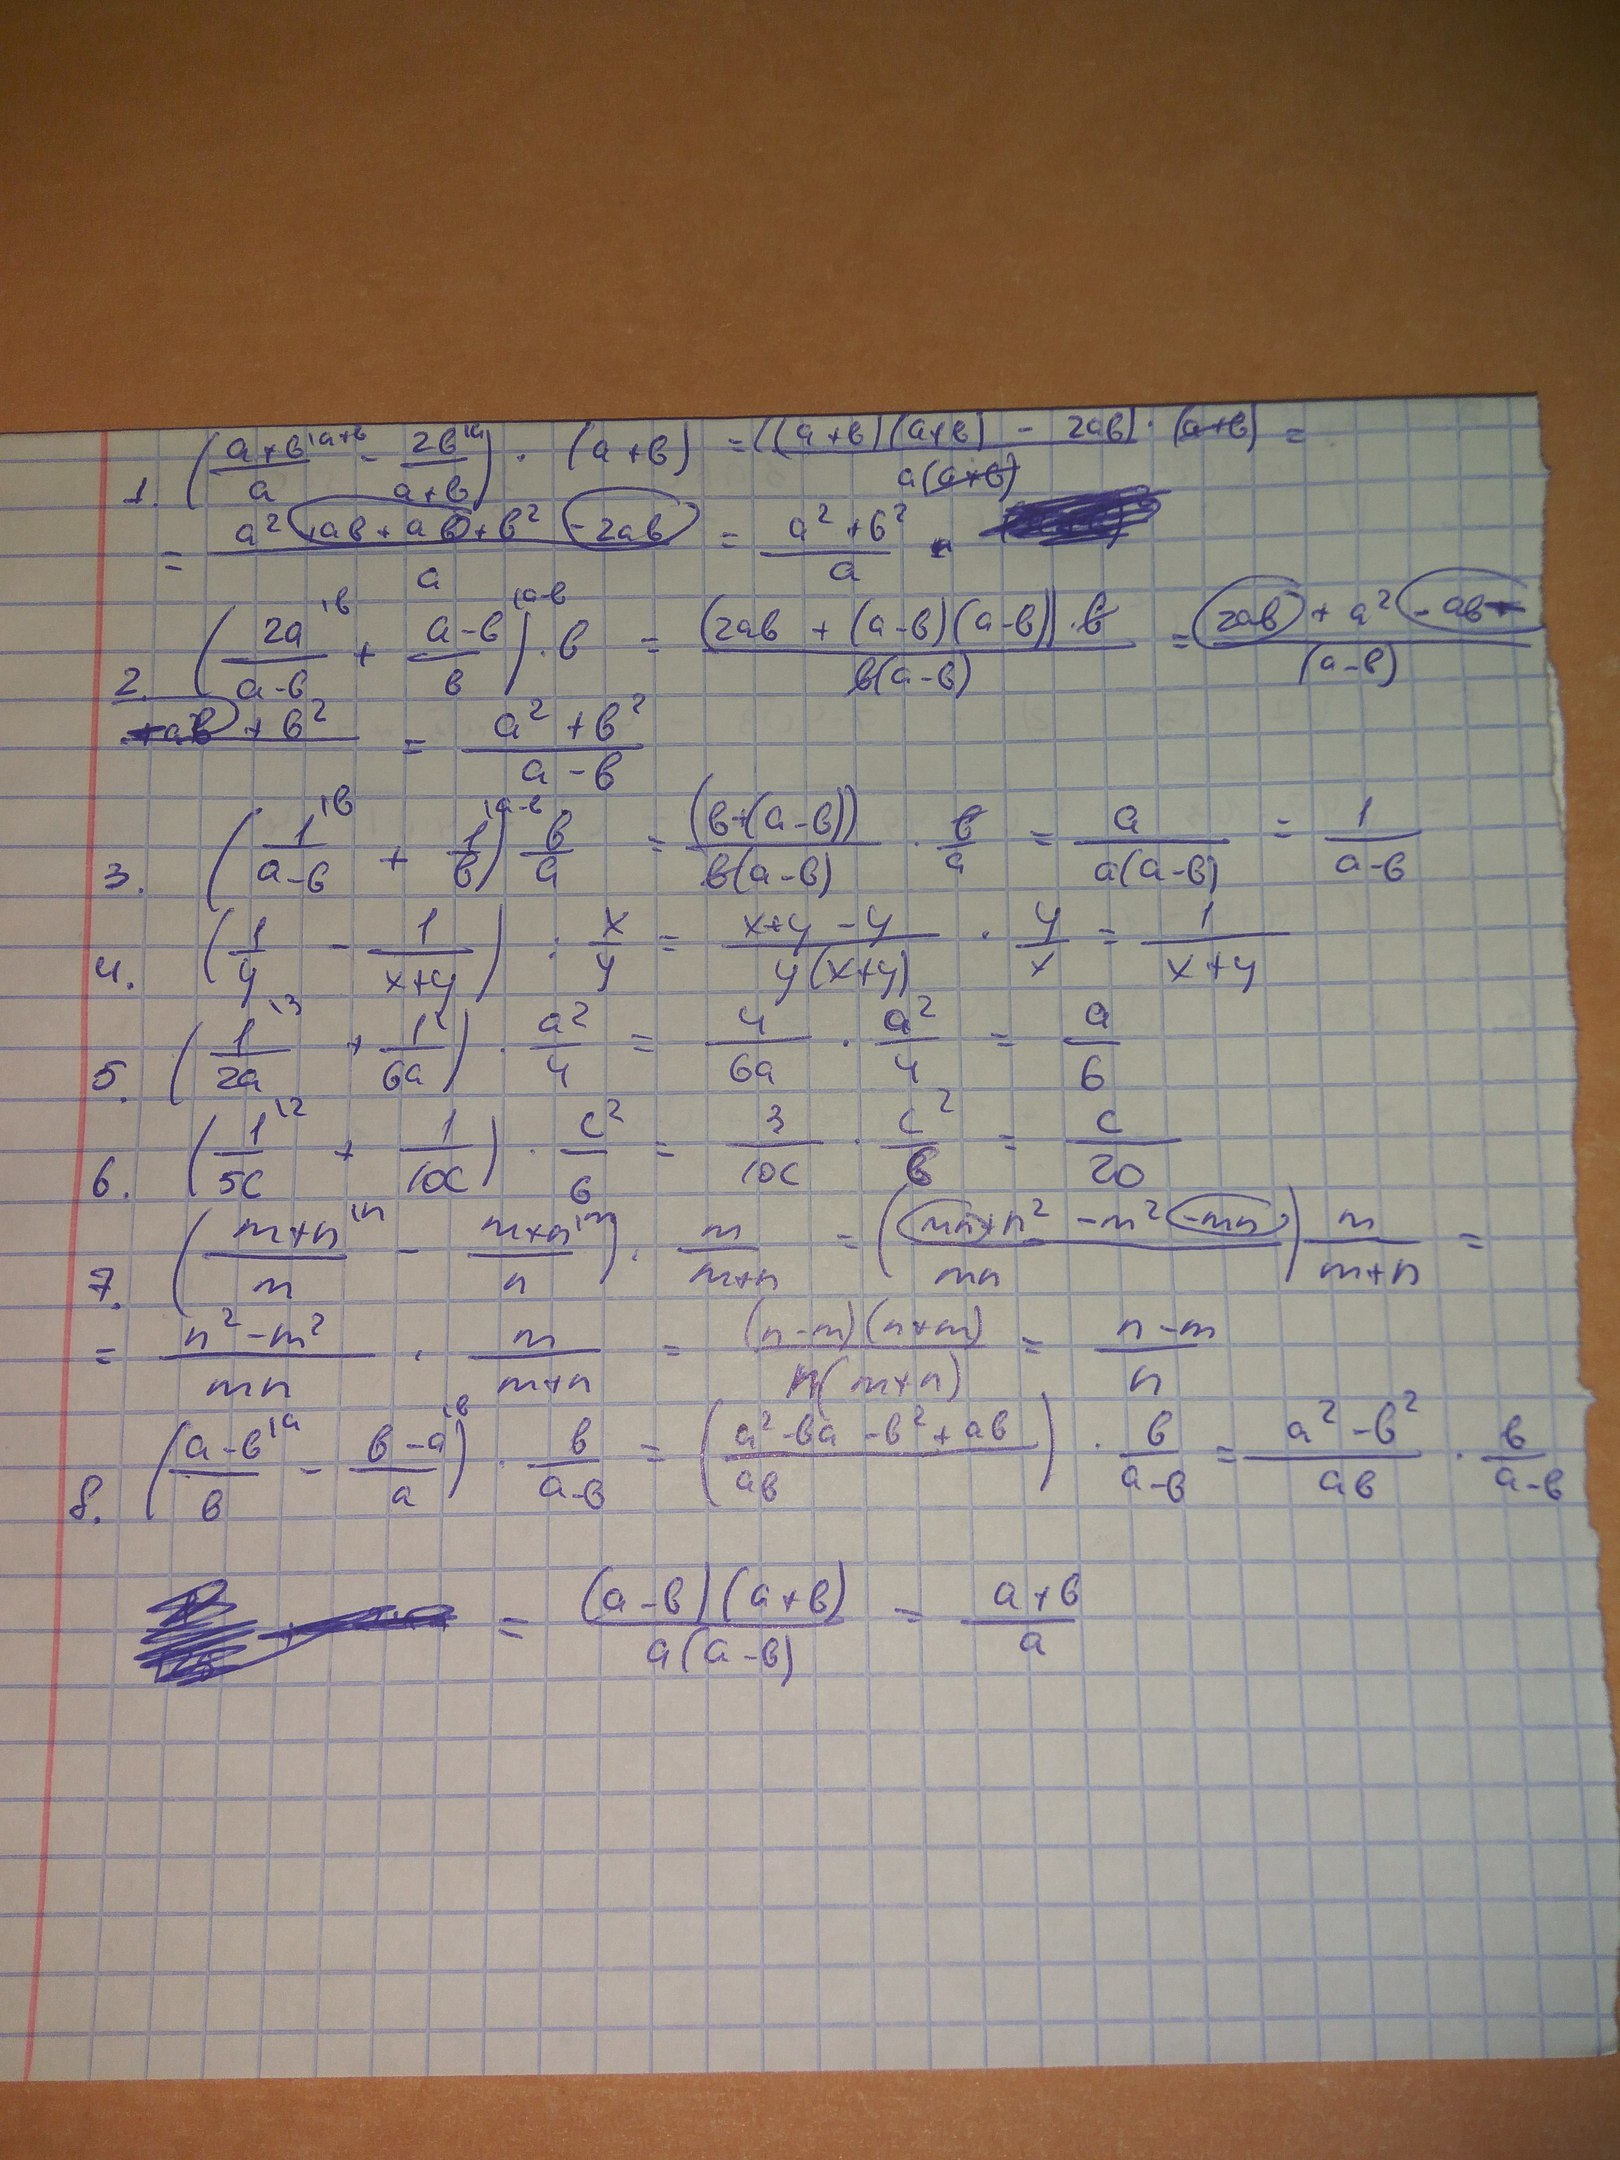 1. ((a+в)/a |a+в − 2в/(a+в) |a) · (a+в) = (((a+в)(a+в) − 2aв) · (a+в))/(a(a+в)) =
= (a² + aв + aв + в² − 2aв)/a = (a² + в²)/a
2. (2a/(a−в) |в + (a−в)/в |a−в) · в = ((2aв + (a−в)(a−в)) · в)/(в(a−в)) = (2aв + a² − aв
− aв + в²)/(a−в) = (a² + в²)/(a−в)
3. (1/(a−в) |в + 1/в |a−в) в/a = (в+(a−в))/(в(a−в)) · в/a = a/(a(a−в)) = 1/(a−в)
4. (1/y − 1/(x+y)) : x/y = (x+y−y)/(y(x+y)) · y/x = 1/(x+y)
5. (1/2a |3 + 1/6a) · a²/4 = 4/6a · a²/4 = a/6
6. (1/5c |2 + 1/10c) · c²/6 = 3/10c · c²/6 = c/20
7. ((m+n)/m |n − (m+n)/n |m) · m/(m+n) = ((mn+n² −m² −mn)/mn) m/(m+n) =
= (n² − m²)/mn · m/(m+n) = ((n−m)(n+m))/(n(m+n)) = (n−m)/n
8. ((a−в)/в |a − (в−a)/a |в) · в/(a−в) = ((a² −вa −в² +aв)/aв) · в/(a−в) = (a² −в²)/aв · в/(a−в)
= ((a−в)(a+в))/(a(a−в)) = (a+в)/a